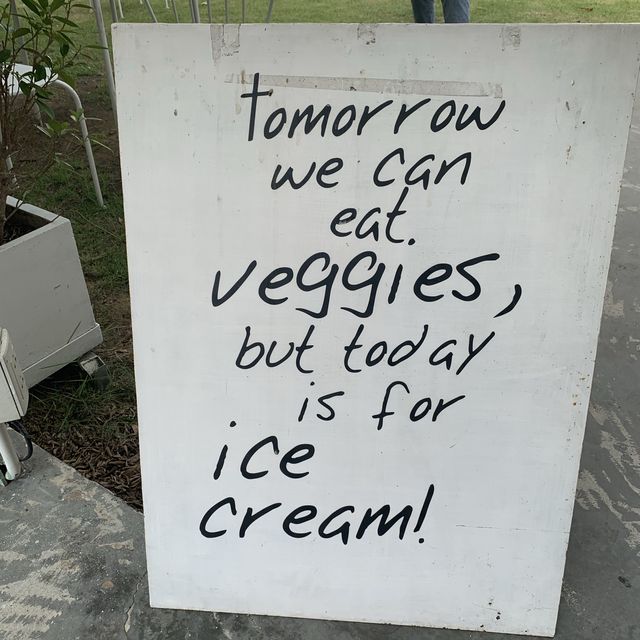 tomorrow
we can
eat.
veggies,
but today
is for
ice
cream!